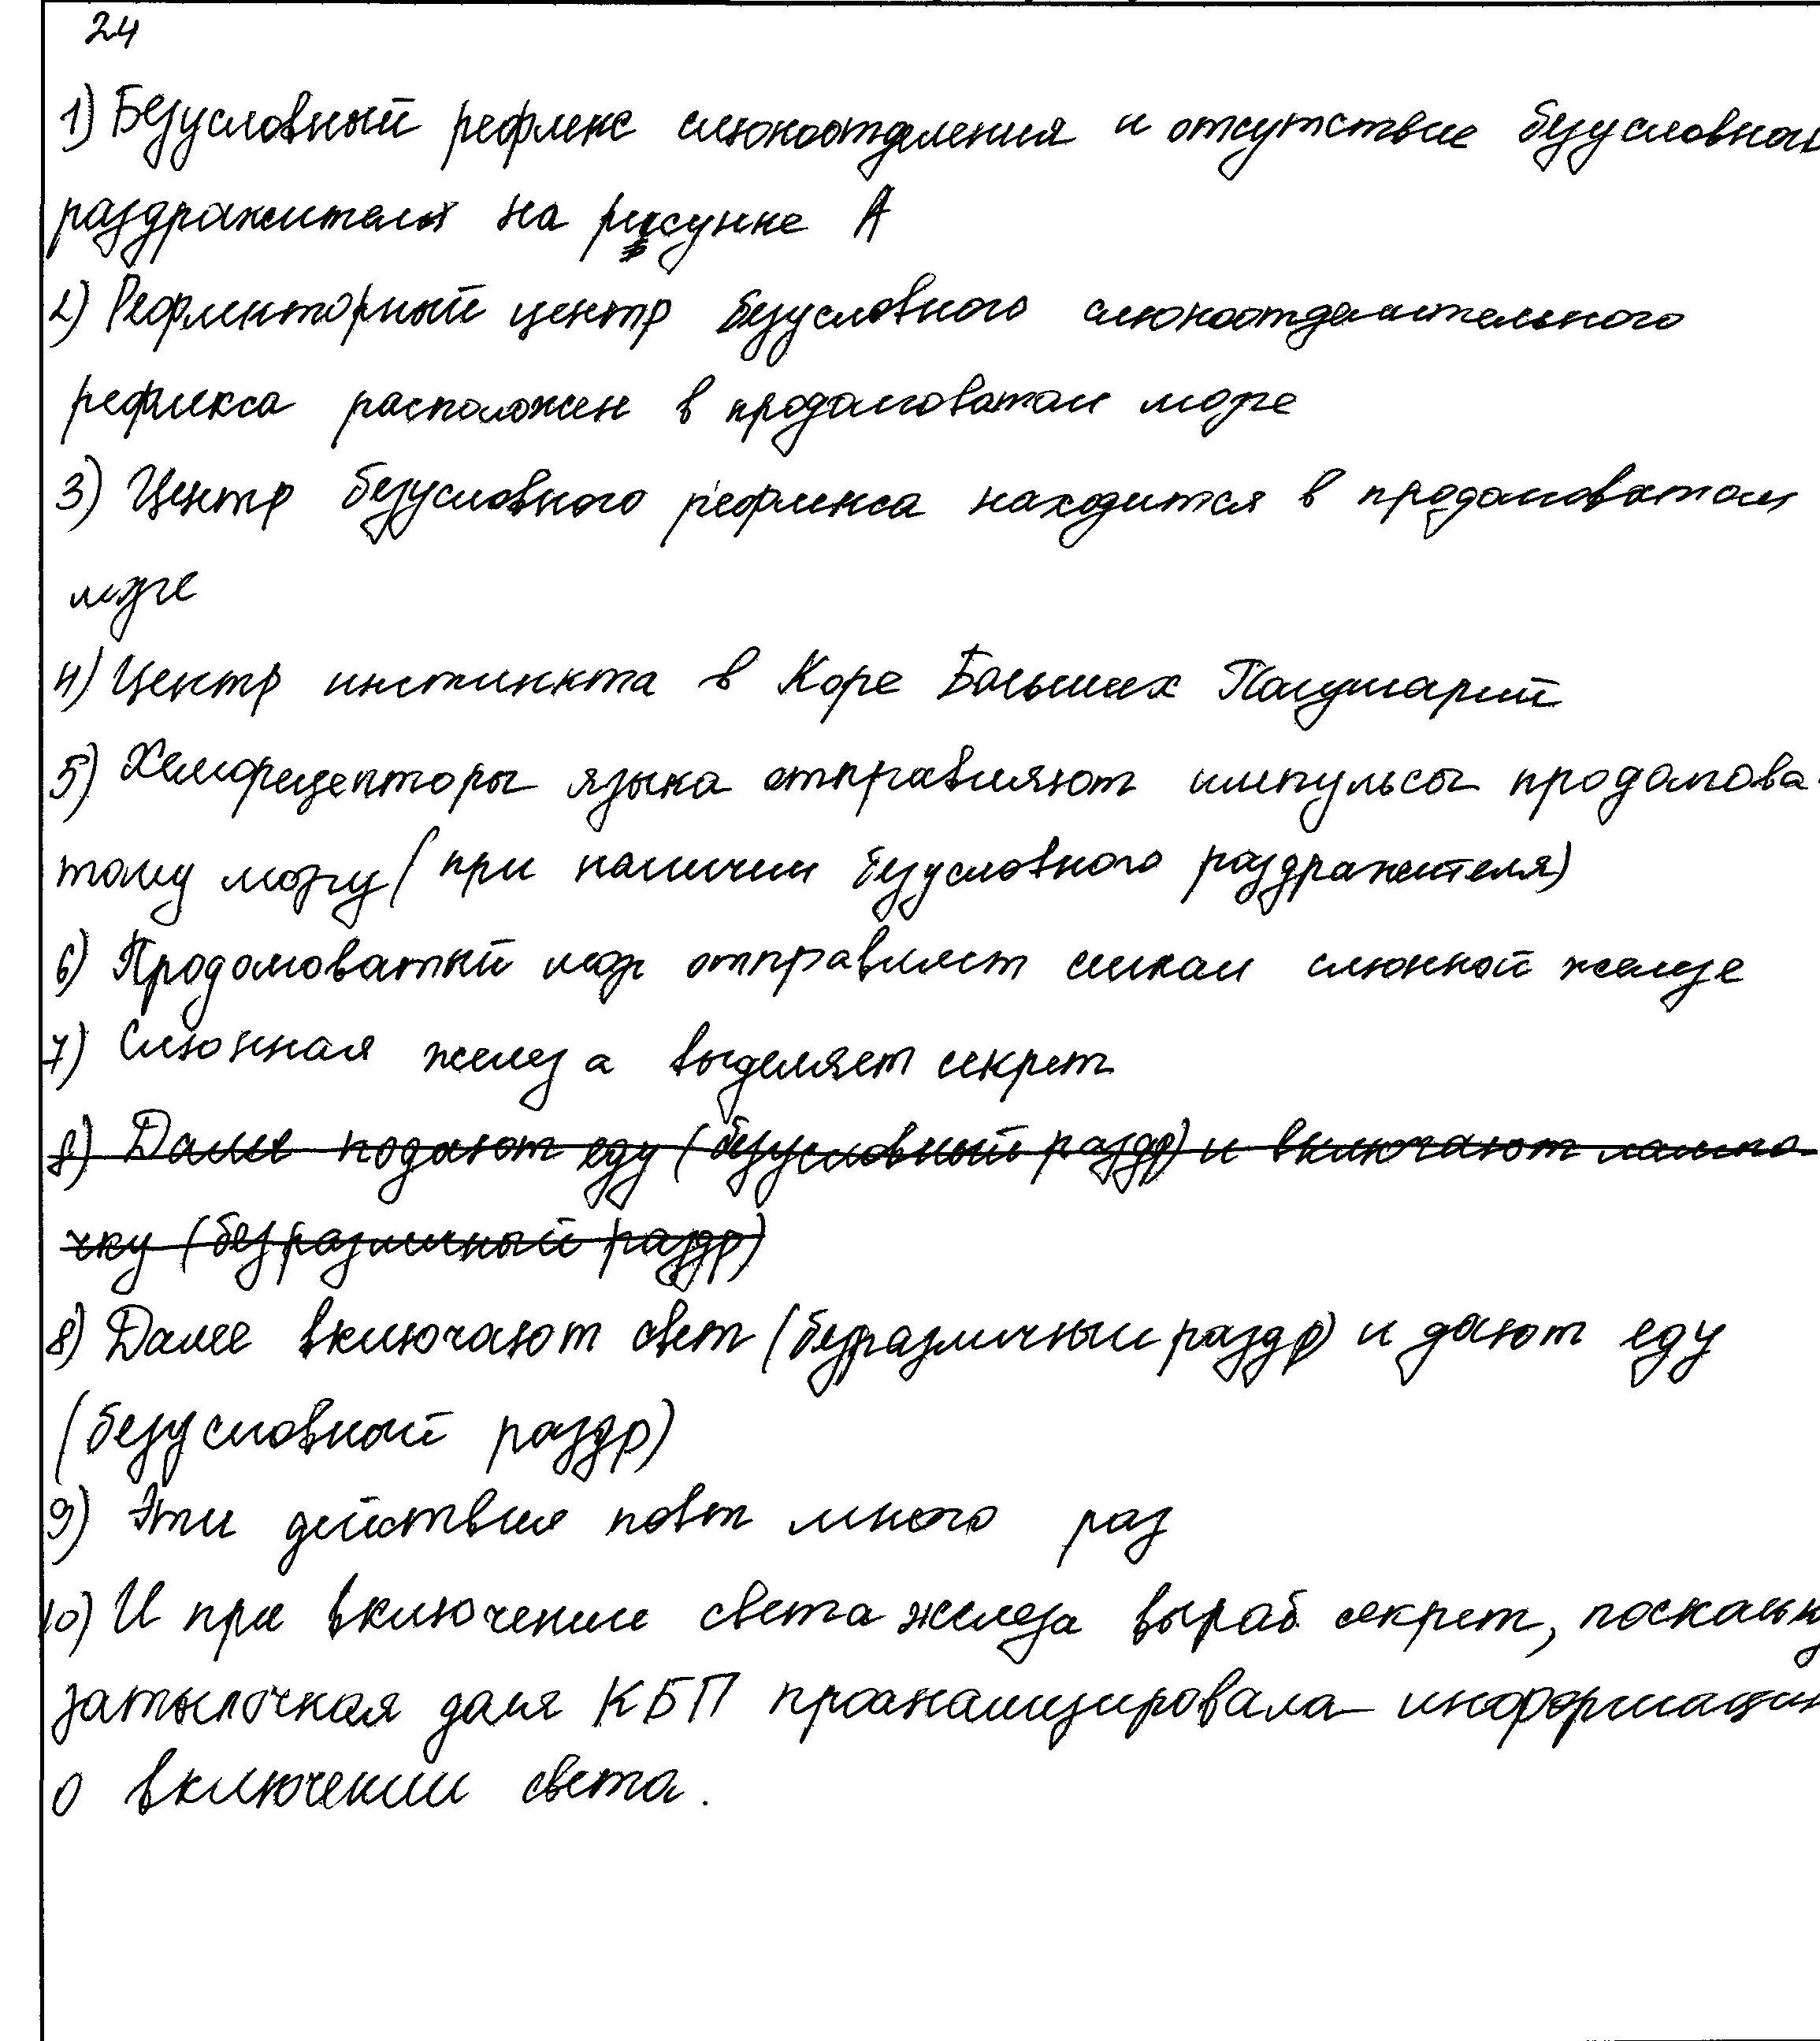 24
1) Безусловный рефлекс слюноотделения и отсутствие безусловног
раздражителя на рисунке А
2) Рефлекторный центр безусловного слюноотделительного
рефлекса расположен в продолговатом мозге
3) Центр безусловного рефлекса находится в продолговатом
мозге
4) Центр инстинкта в Коре Больших Полушарий
5) Хеморецепторы языка отправляют импульсы продолгова-
тому мозгу (при наличии безусловного раздражителя)
6) Продолговатый мозг отправляет сигнал слюнной железе
7) Слюнная железа выделяет секрет
8) Далее подают еду (безусловный раздр) и включают лампо-
чку (безразличный раздр)
8) Далее включают свет (безразличный раздр) и дают еду
(безусловный раздр)
9) Эти действия повт много раз
10) И при включении света железа выраб. секрет, поскольку
затылочная доля КБП проанализировала информацию
о включении света.